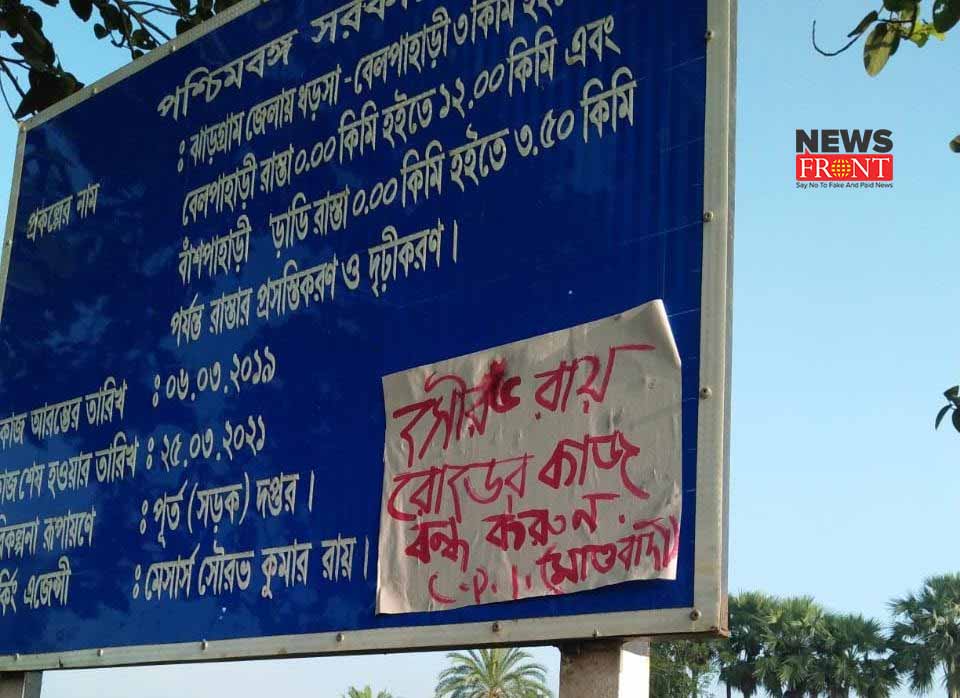 পশ্চিমবঙ্গ সরকার
প্রকল্পের নাম : ঝাড়গ্রাম জেলায় ধড়সা - বেলপাহাড়ী ৩ কিমি হইতে
বেলপাহাড়ী রাস্তা ০.০০ কিমি হইতে ১২.০০ কিমি এবং
বাঁশপাহাড়ী ড়াডি রাস্তা ০.০০ কিমি হইতে ৩.৫০ কিমি
পর্যন্ত রাস্তার প্রসস্তিকরণ ও দৃঢ়ীকরণ।
কাজ আরম্ভের তারিখ : ০৬.০৩.২০১৯
কাজ শেষ হওয়ার তারিখ : ২৫.০৩.২০২১
রূপায়ণে : পূর্ত (সড়ক) দপ্তর।
এজেন্সী : মেসার্স সৌরভ কুমার রায়।
রায়
রোডের কাজ
বন্ধ করুন.
C.P.I. (মাওবাদী)
NEWS
FRONT
Say No To Fake And Paid News